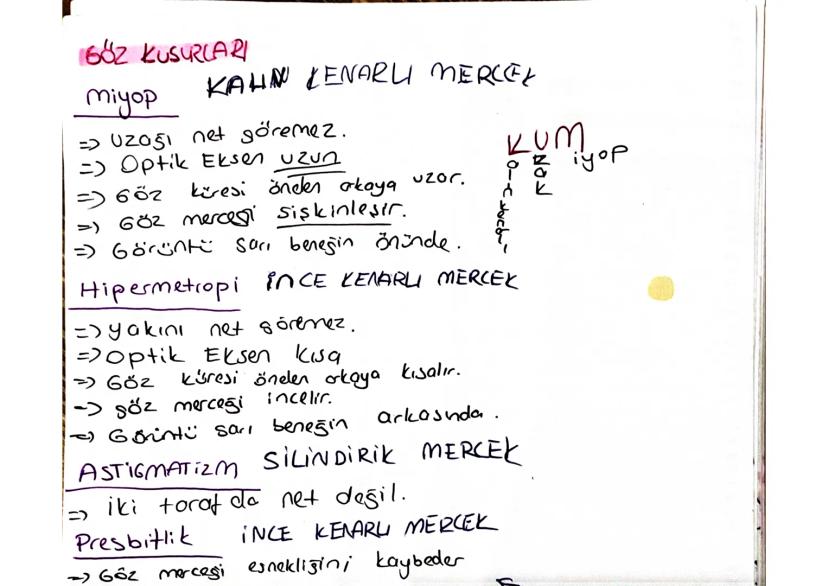 GÖZ KUSURLARI
Miyop KALIN KENARLI MERCEK
=> Uzağı net göremez.
=> Optik Eksen uzun
=> Göz küresi önden arkaya uzar.
=> Göz merceği şişkinleşir.
=> Görüntü sarı beneğin önünde.
KUM
alın kenarlı
zak
iyop
Hipermetropi İNCE KENARLI MERCEK
=> Yakını net göremez.
=> Optik Eksen kısa
=> Göz küresi önden arkaya kısalır.
=> göz merceği incelir.
=> Görüntü sarı beneğin arkasında.
ASTİGMATİZM SİLİNDİRİK MERCEK
=> iki taraf da net değil.
Presbitlik İNCE KENARLI MERCEK
=> Göz merceği esnekliğini kaybeder